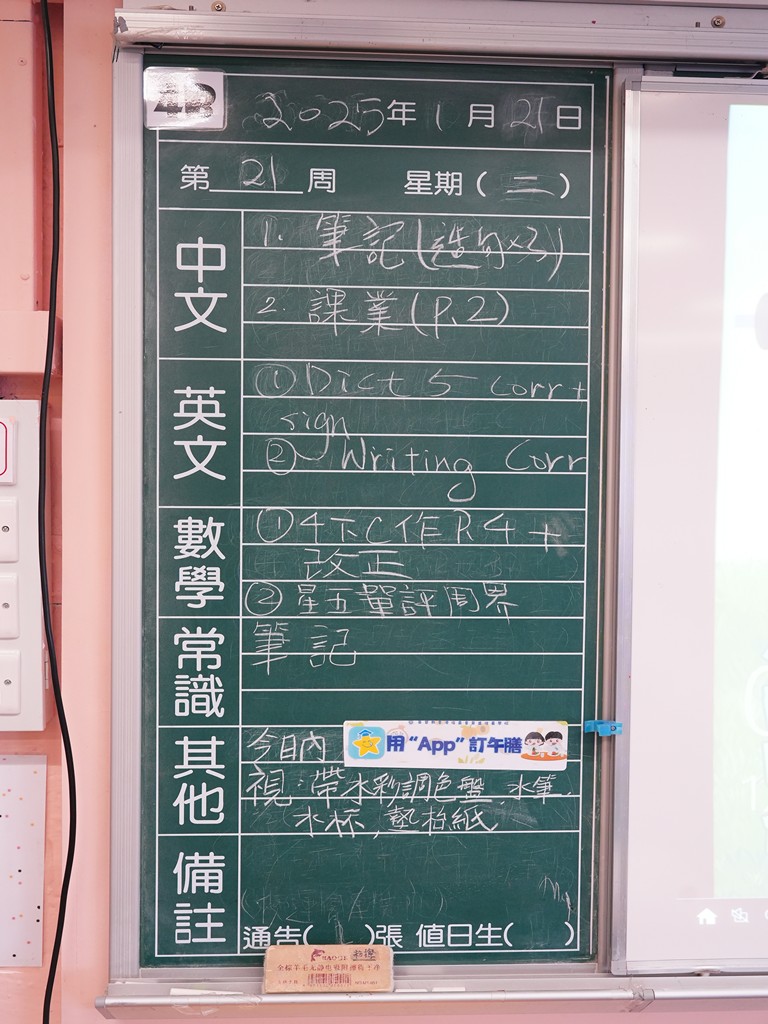 4B
2025年1月21日
第21周 星期(二)
中文
1. 筆記(造句x3)
2. 課業(P.2)
英文
① Dict 5 corr +
sign
② Writing Corr
數學
① 4下C作P.4 +
改正
② 星五單評周界
常識
筆記
其他
今日內
用“App”訂午膳
視:帶水彩調色盤、水筆、
水杯,墊枱紙
備註
通告( )張 值日生( )